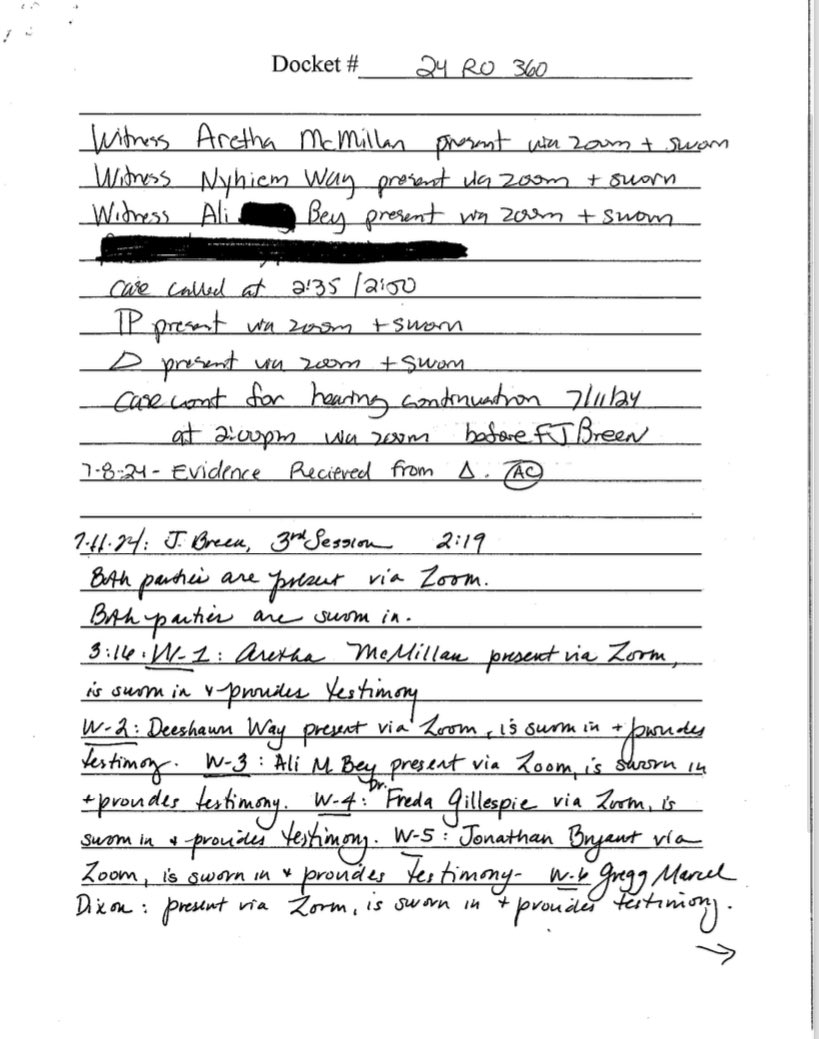 Docket # 24 RO 360
Witness Aretha McMillan present via zoom + sworn
Witness Nyhiem Way present via zoom + sworn
Witness Ali Bey present via zoom + sworn
Case called at 2:35 / 2:50
TP present via zoom + sworn
D present via zoom + sworn
Case cont for hearing continuation 7/11/24
at 2:00pm via zoom before FJ Breen
7-8-24 - Evidence Recieved from Δ. AC
7.11.24: J. Breen, 3rd Session 2:19
Both parties are present via Zoom.
Both parties are sworn in.
3:16: W-1: Aretha McMillan present via Zoom,
is sworn in + provides testimony
W-2: Deeshawn Way present via Zoom, is sworn in + provides
testimony. W-3: Ali M Bey present via Zoom, is sworn in
+ provides testimony. W-4: Dr. Freda Gillespie via Zoom, is
sworn in + provides testimony. W-5: Jonathan Bryant via
Zoom, is sworn in + provides testimony- W-6 Gregg Marcel
Dixon: present via Zoom, is sworn in + provides testimony.
→